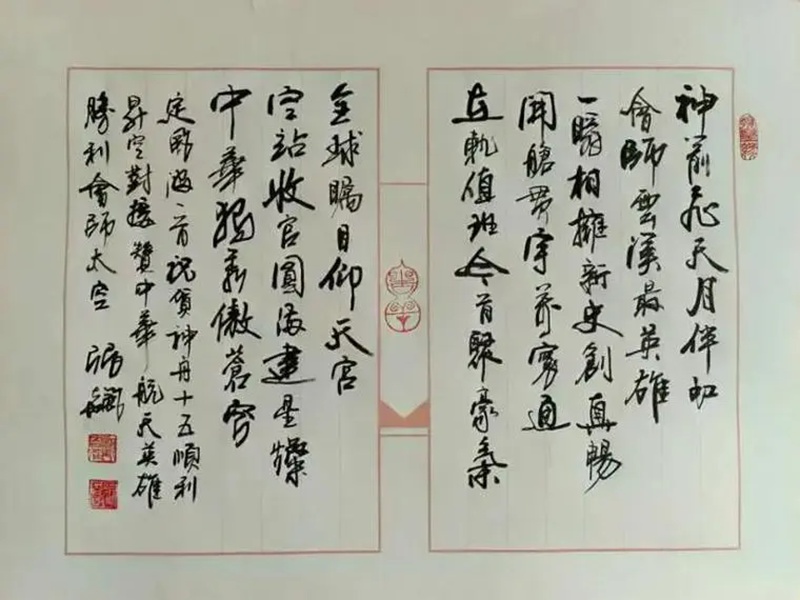 神箭飛天月伴虹
會師雲漢最英雄
一瞬相擁新史創真暢
開艙貫宇萬寰通
在軌值班今首聚豪氣
全球矚目仰天宮
空站收官圓滿建星燦
中華獨秀傲蒼穹
定風波一首祝賀神舟十五順利
昇空對接贊中華航天英雄
勝利會師太空